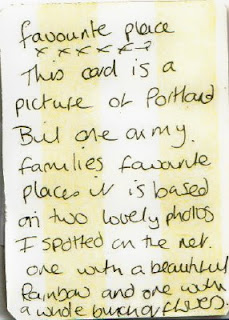 favourite place
x x x x x x
This card is a
picture of Portland
But one on my
families favourite
places it is based
on two lovely photos
I spotted on the net.
one with a beautiful
Rainbow and one with
a whole bunch of flowers.